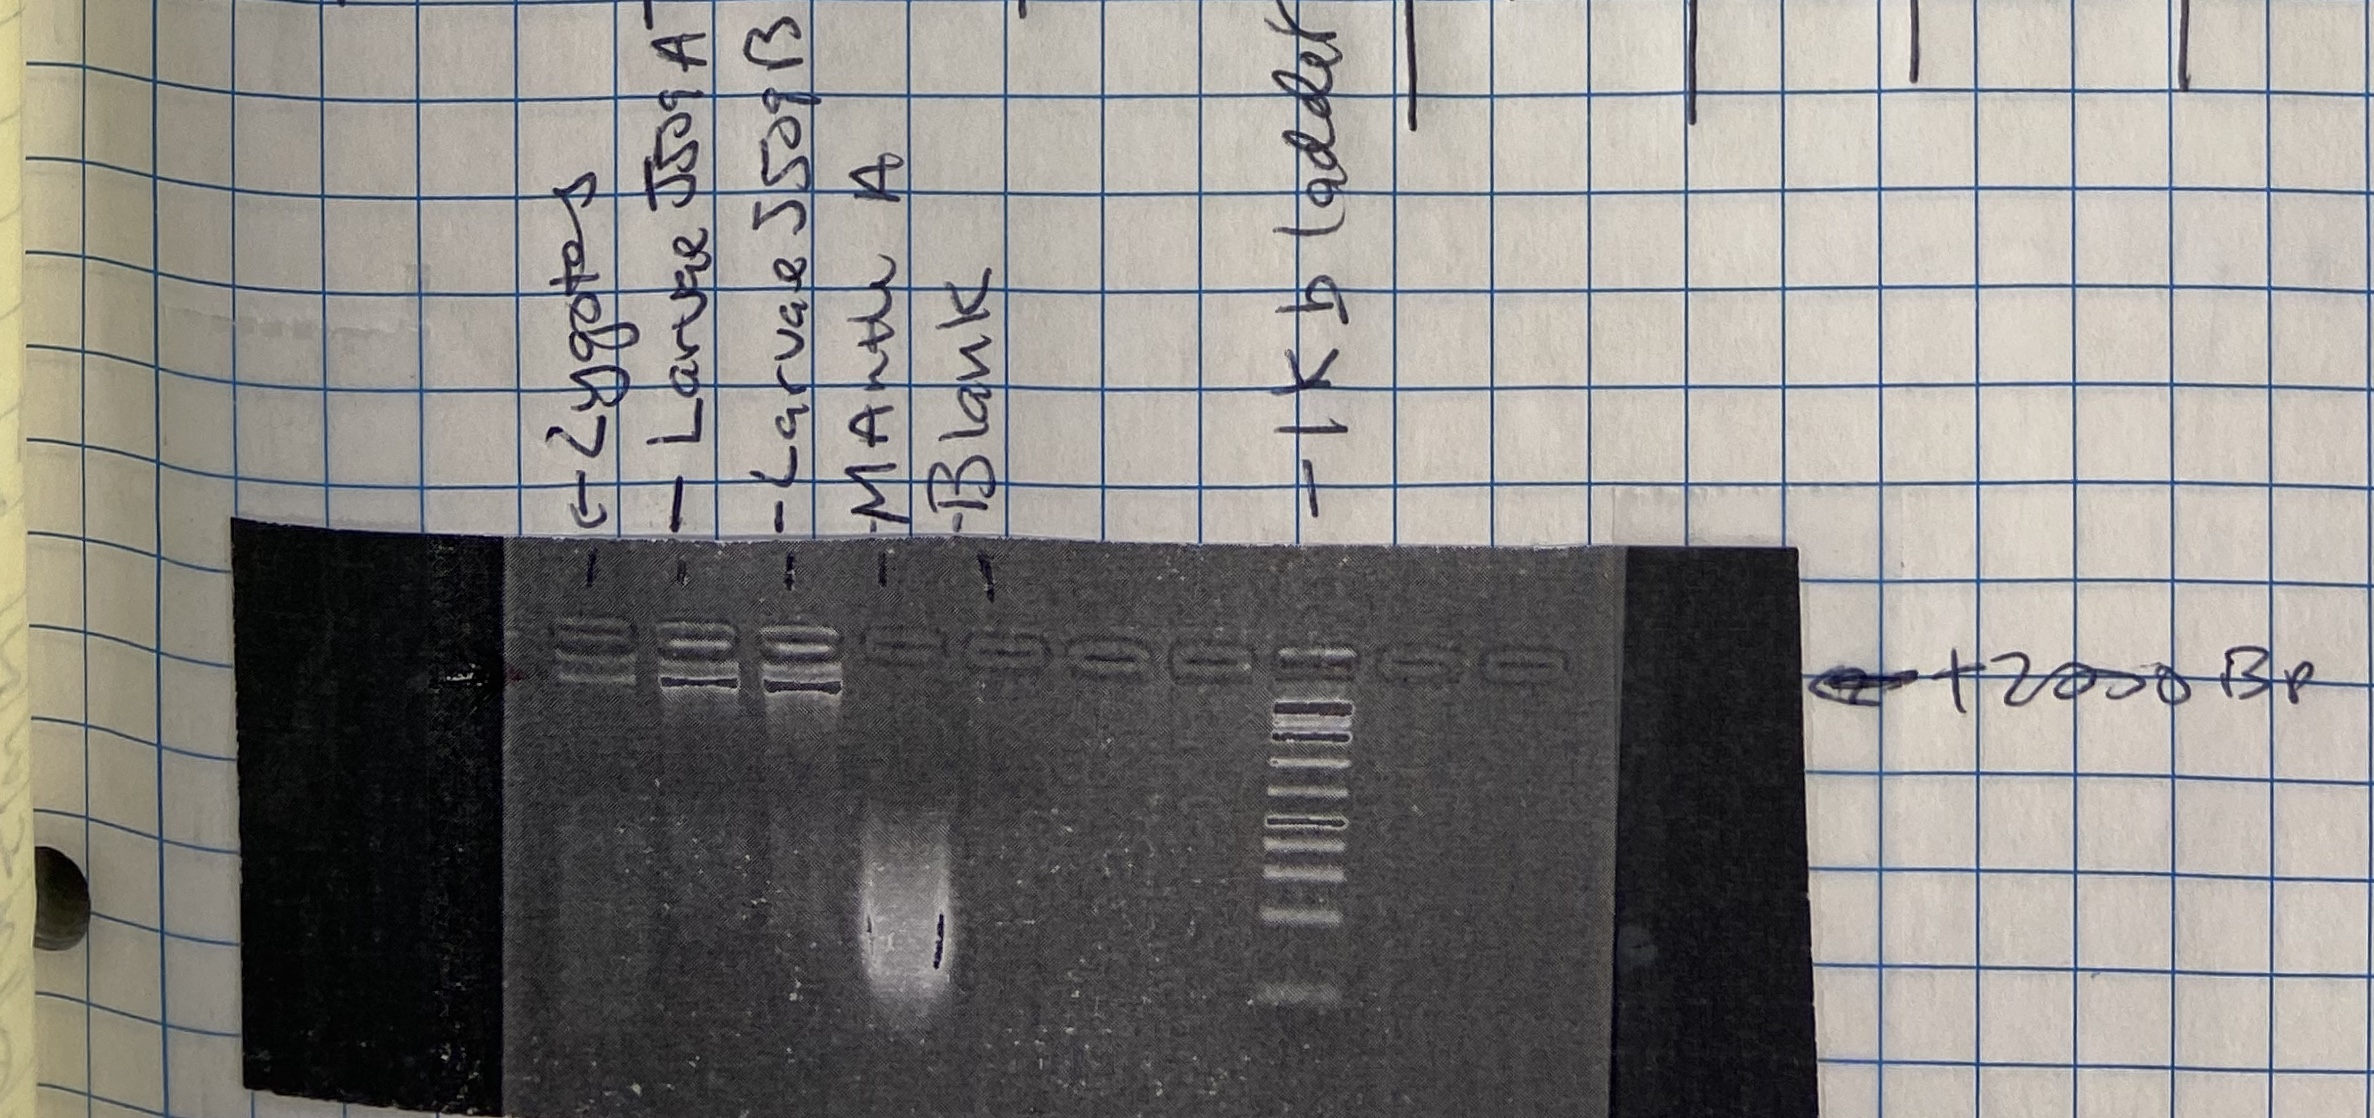 Zygotes
- Larvae J50g A
- Larvae J50g B
- MAntle A
- Blank
- 1Kb ladder
← +2000 Bp